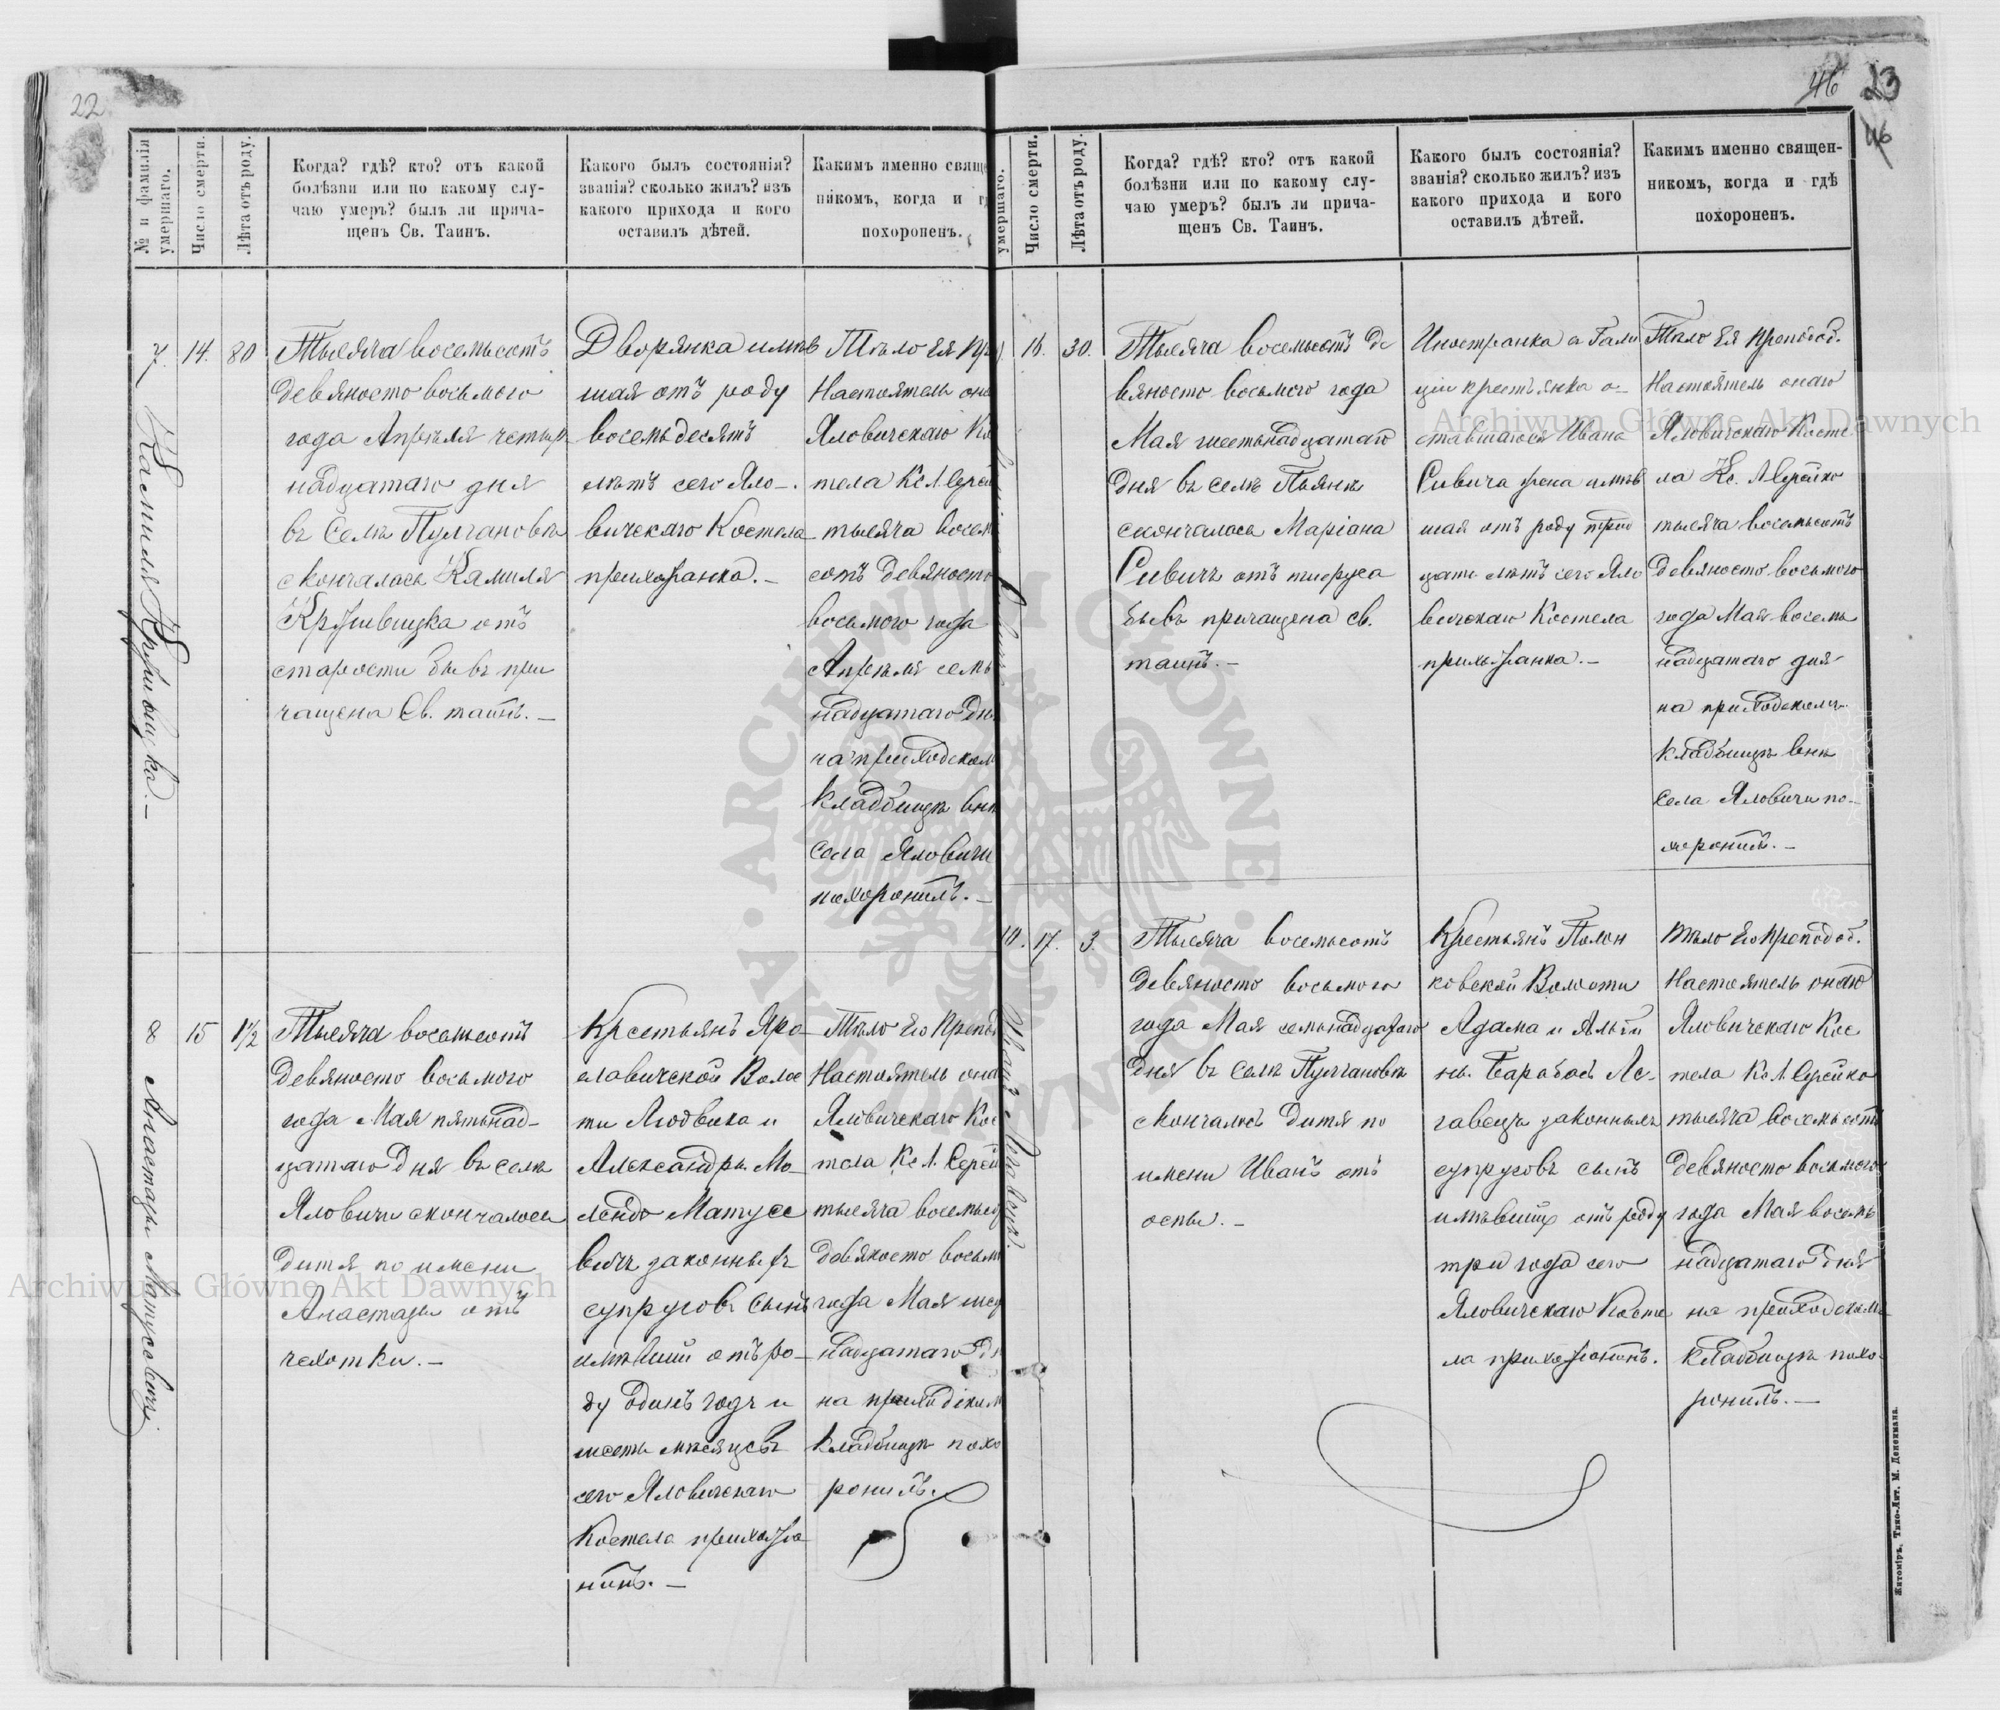 22
№ и фамилія умершаго.
Число смерти.
Лѣта отъ роду.
Когда? гдѣ? кто? отъ какой
болѣзни или по какому слу-
чаю умеръ? былъ ли прича-
щенъ Св. Таинъ.
Какого былъ состоянія?
званія? сколько жилъ? изъ
какого прихода и кого
оставилъ дѣтей.
Каким именно свяще
никомъ, когда и г
похороненъ.
7.
Камиля Крушвицка.—
14.
80
Тысяча восемьсотъ
девяносто восьмого
года Апрѣля четыр
надцатаго дня
въ Селѣ Пулгановѣ
скончалась Камиля
Крушвицка отъ
старости бывъ при
чащена Св. таинъ.—
Дворянка имѣв
шая отъ роду
восемьдесятъ
лѣтъ сего Яло-
вичскаго Костела
прихожанка.—
Тѣло Ея Пр
Настоятель она
Яловичскаго Ко
тела Кс. Л. Серей
тысяча восем
сотъ девяносто
восьмого года
Апрѣля семь
надцатаго дн
на приходском
кладбищѣ внѣ
села Яловичи
похоронилъ.—
8
Анастазы Матусевичъ
15
1½
Тысяча восемьсотъ
девяносто восьмого
года Мая пятьнад-
цатаго дня въ селѣ
Яловичи скончалось
дитя по имени
Анастазы отъ
чехотки.—
Крестьянъ Яро-
славичской Волос
ти Людвика и
Александры
Матусе
вичъ законныхъ
супруговъ сынъ
имѣвшій отъ ро-
ду одинъ годъ и
шесть мѣсяцевъ
сего Яловичскаго
Костела прихожа
нинъ.—
Тѣло Его Препод
Настоятель она
Яловичскаго Кос
тела Кс. Л. Серей
тысяча восемьсо
девяносто восьм
года Мая шес
надцатаго дн
на приходском
кладбищѣ похо
ронилъ.
46 23
46
умершаго.
Число смерти.
Лѣта отъ роду.
Когда? гдѣ? кто? отъ какой
болѣзни или по какому слу-
чаю умеръ? былъ ли прича-
щенъ Св. Таинъ.
Какого былъ состоянія?
званія? сколько жилъ? изъ
какого прихода и кого
оставилъ дѣтей.
Каким именно священ-
никомъ, когда и гдѣ
похороненъ.
16.
30.
Тысяча восемьсотъ де
вяносто восьмого года
Мая шестьнадцатаго
дня въ селѣ Пьянѣ
скончалась Маріана
Сивичъ отъ тифуса
бывъ причащена Св.
таинъ.—
Иностранка съ Гали
ціи крестьянка о-
ставшагося Ивана
Сивича жена имѣв
шая отъ роду трид
цать лѣтъ сего Яло
вичскаго Костела
прихожанка.—
Тѣло Ея Препод.
Настоятель онаго
Яловичскаго Косте
ла Кс. Л. Серейко
тысяча восемьсотъ
девяносто восьмого
года Мая восемь
надцатаго дня
на приходскомъ
кладбищѣ внѣ
села Яловичи по-
хоронилъ.—
10.
17.
3.
Тысяча восемьсотъ
девяносто восьмого
года Мая семьнадцатаго
дня въ селѣ Пулгановѣ
скончалось дитя по
имени Иванъ отъ
оспы.—
Крестьянъ Полон
ковской Волости
Адама и
законныхъ
супруговъ сынъ
имѣвшій отъ роду
три года сего
Яловичскаго Косте
ла прихожанинъ.
Тѣло Его Препод.
Настоятель онаго
Яловичскаго Кос
тела Кс. Л. Серейко
тысяча восемьсотъ
девяносто восьмого
года Мая восемь
надцатаго дня
на приходскомъ
кладбищѣ похо-
ронилъ.—
Житоміръ, Типо-Лит. М. Дененмана.
Archiwum Główne Akt Dawnych
Archiwum Główne Akt Dawnych
ARCHIWUM GŁÓWNE AKT DAWNYCH